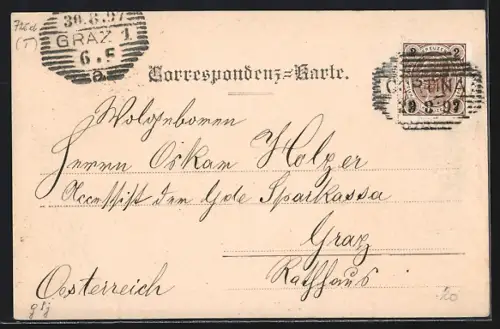 30.8.97
GRAZ 1
6.F
a
Correspondenz=Karte.
2 KREUZER 2
CORTINA
29 8 97
Wolgeboren
Herrn Oskar Holzer
Accessist der Gde Sparkassa
Graz
Rathhaus
Oesterreich
20